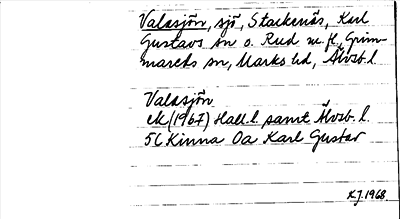 Valasjön, sjö, Stackenäs, Karl
Gustavs sn o. Rud m. fl, Grim-
mareds sn, Marks hd, Älvsb. l.
Valasjön
ek (1967) Hall. l. samt Älvsb. l.
5C Kinna Oa Karl Gustav
K.J. 1968